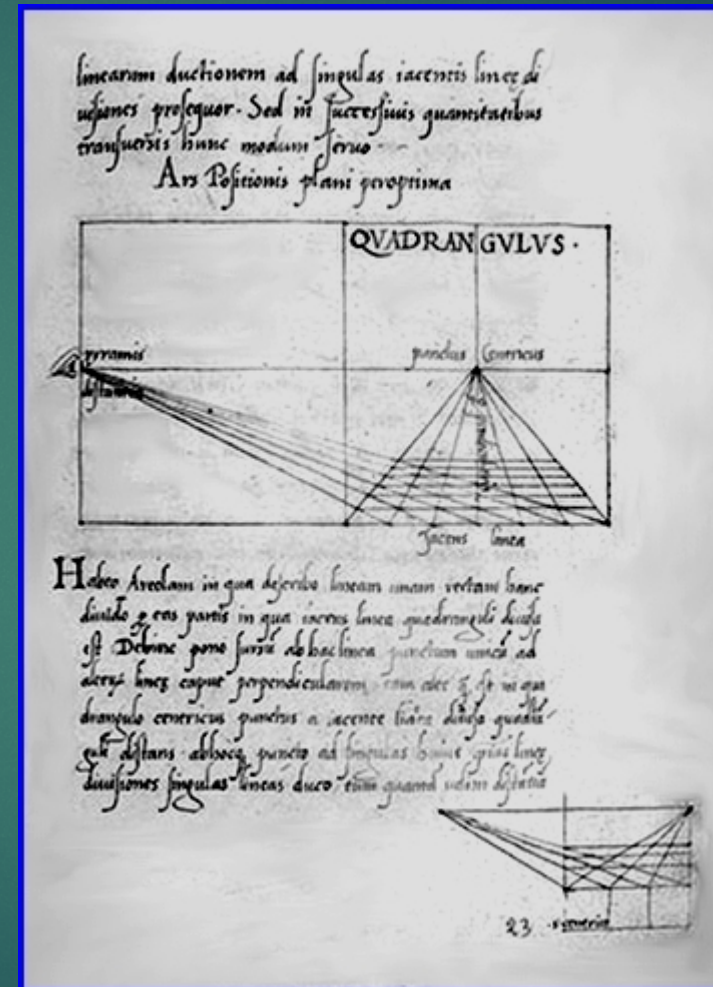 linearum ductionem ad singulas iacentis lineę di
uisiones prosequor. Sed in successiuis quantitatibus
transuersis hunc modum seruo
Ars Positionis plani peroptima
QVADRANGVLVS.
pyramis
punctus Centricus
distantię
Jacens linea
Habeo Areolam in qua describo lineam unam rectam hanc
diuido p eas partis in qua iacens linea quadranguli diuisa
est Dehinc pono sursū ab hac linea punctum unicū ad
alterā lineę caput perpendicularem tam alte q̃ est in qua
drangulo centricus punctus a iacente linea diuisa quadrā
guli distans abhocq puncto ad singulas huius ipsius lineę
diuisiones singulas lineas duco tum quantā uelim distantiā
23